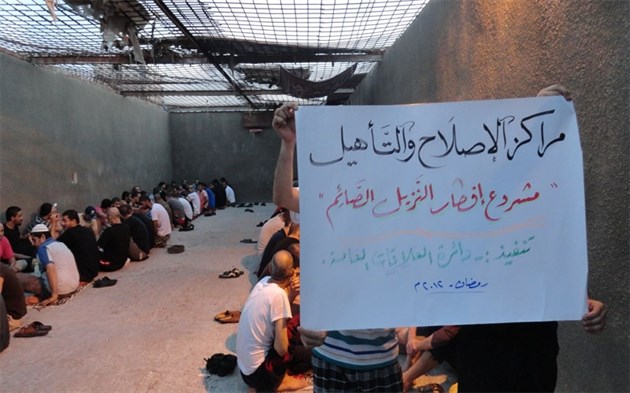 مراكز الإصلاح والتأهيل
"مشروع إفطار النزيل الصائم"
تنفيذ :- دائرة العلاقات العامة .
رمضان - ٢٠١٢م